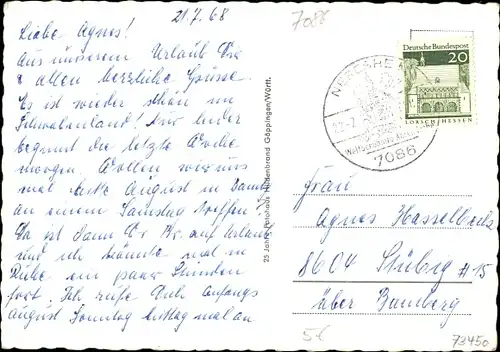 21.7.68
7086
Liebe Agnes!
Aus unserem Urlaub Dir
+ allen herzliche Grüsse.
Es ist wieder schön im
Schwabenland! Nur leider
beginnt die letzte Woche
morgen. Wollen wir uns
mal Mitte August in
an einem Samstag treffen?
Da ist dann auf Urlaub
und ich könnte mal in
Ruhe ein paar Stunden
fort. Ich rufe Dich Anfangs
August Sonntag mal an
25 Jahre Hildenbrand Göppingen/Württ.
Deutsche Bundespost
20
LORSCH/HESSEN
7086
Frau
Agnes
8604
über Bamberg
73450